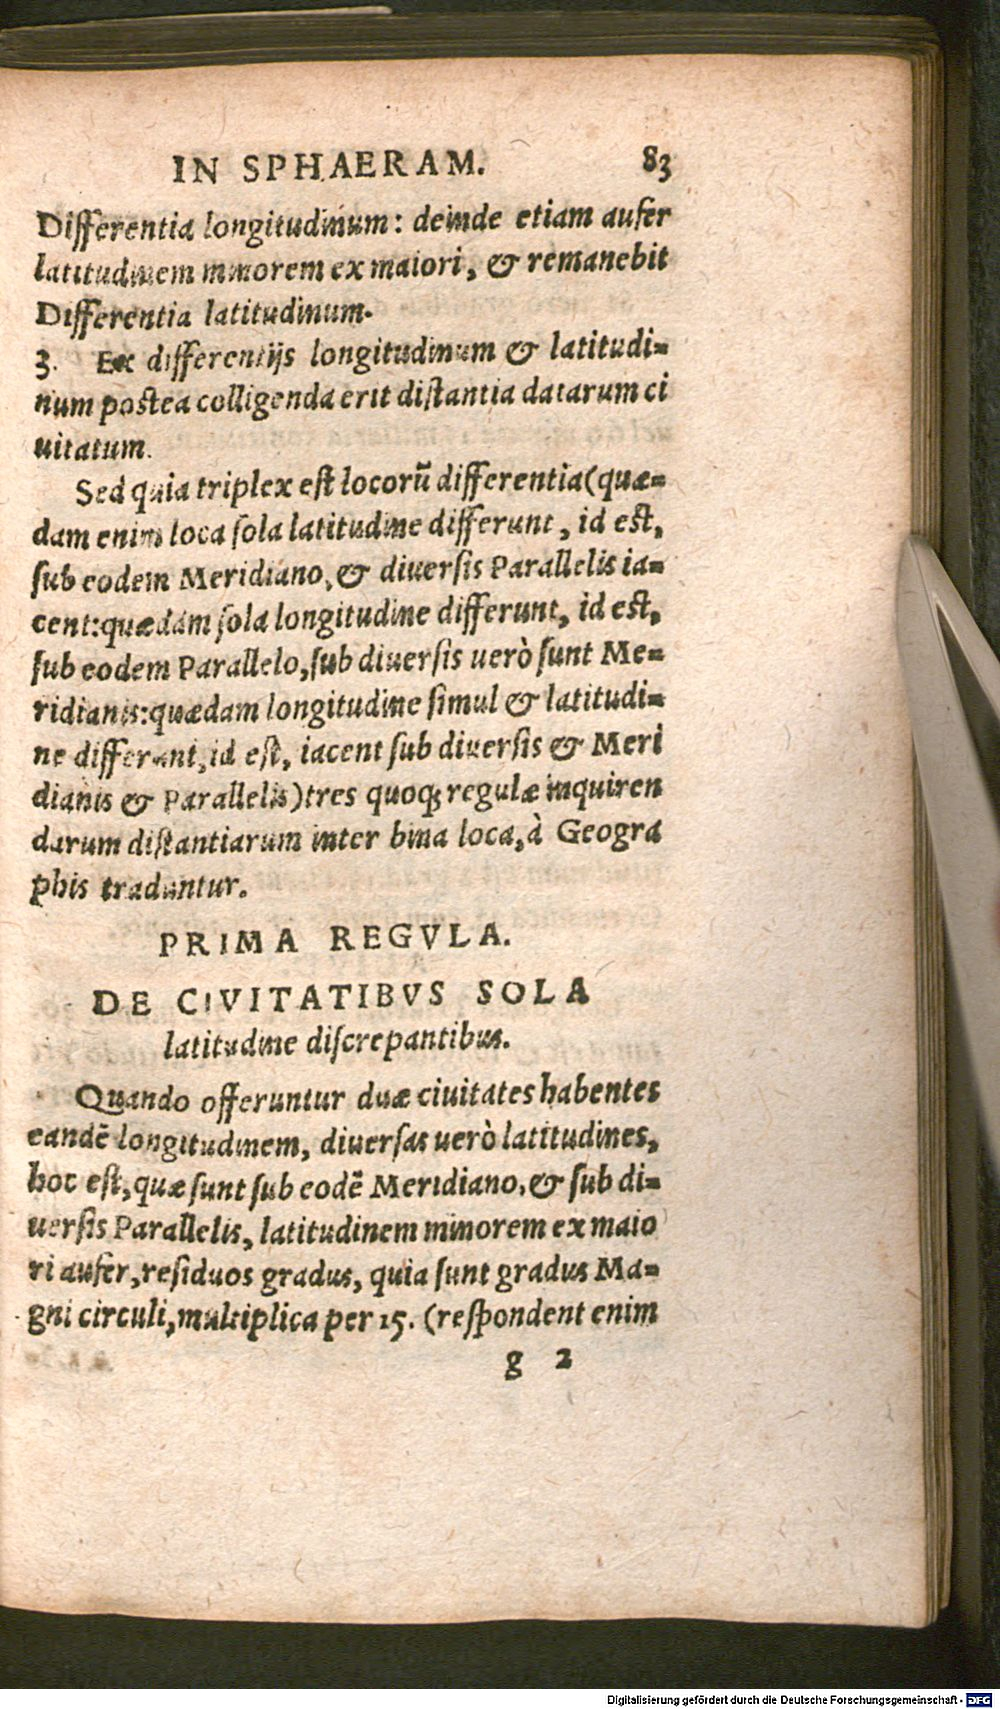 IN SPHAERAM. 83
Differentia longitudinum: deinde etiam aufer
latitudinem minorem ex maiori, & remanebit
Differentia latitudinum.
3. Ex differentijs longitudinum & latitudi=
num postea colligenda erit distantia datarum ci
uitatum.
Sed quia triplex est locorū differentia (quæ=
dam enim loca sola latitudine differunt, id est,
sub eodem Meridiano, & diuersis Parallelis ia=
cent: quædam sola longitudine differunt, id est,
sub eodem Parallelo, sub diuersis uerò sunt Me=
ridianis: quædam longitudine simul & latitudi=
ne differunt, id est, iacent sub diuersis & Meri
dianis & Parallelis) tres quoq; regulæ inquiren
darum distantiarum inter bina loca, à Geogra
phis traduntur.
PRIMA REGVLA.
DE CIVITATIBVS SOLA
latitudine discrepantibus.
Quando offeruntur duæ ciuitates habentes
eandē longitudinem, diuersas uerò latitudines,
hoc est, quæ sunt sub eodē Meridiano, & sub di=
uersis Parallelis, latitudinem minorem ex maio
ri aufer, residuos gradus, quia sunt gradus Ma=
gni circuli, multiplica per 15. (respondent enim
g 2
Digitalisierung gefördert durch die Deutsche Forschungsgemeinschaft - DFG